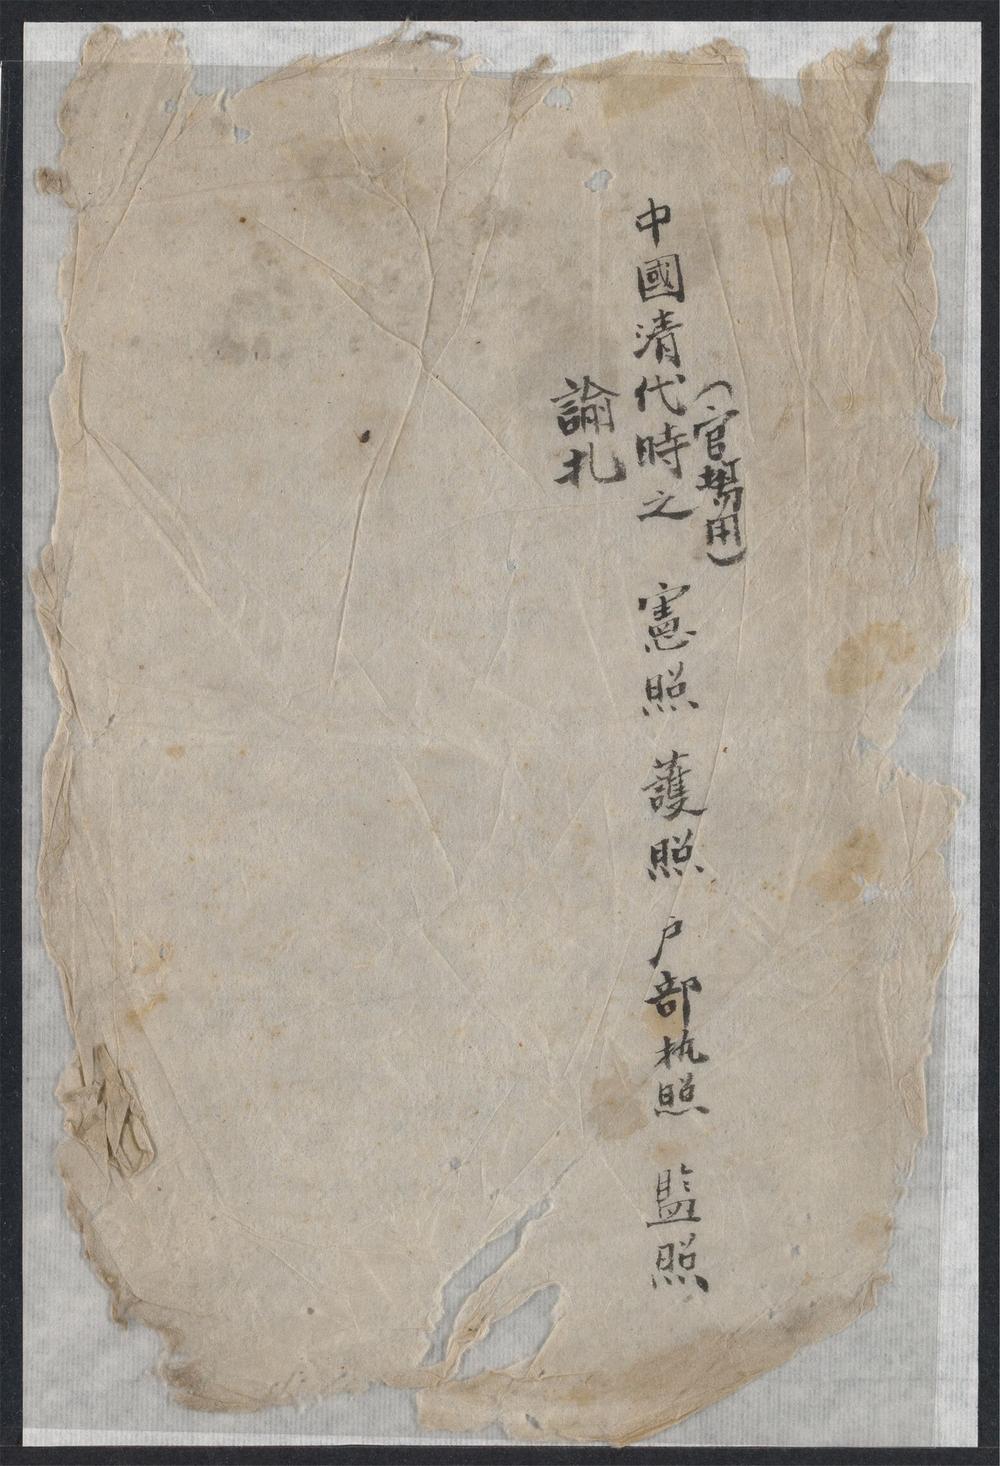 (官場用)
中國清代時之 憲照 護照 戶部执照 監照
諭札